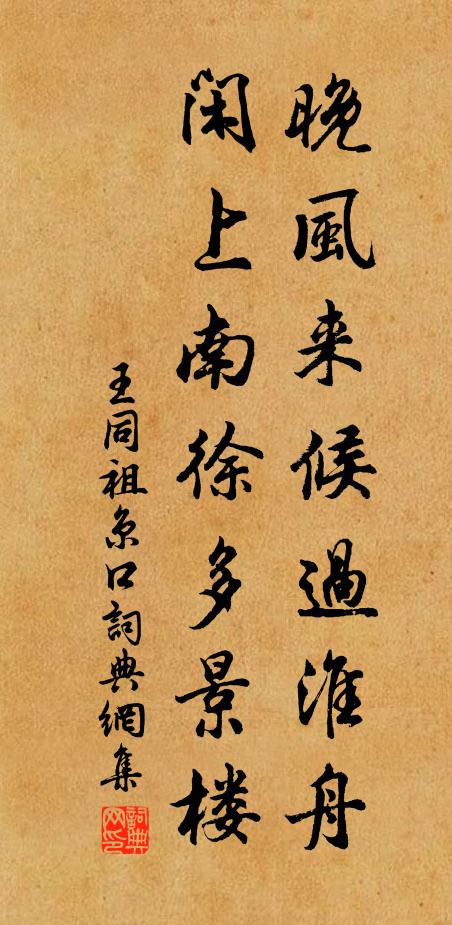 晚風来候過淮舟
閑上南徐多景楼
王同祖京口詞典網集
詞典网印